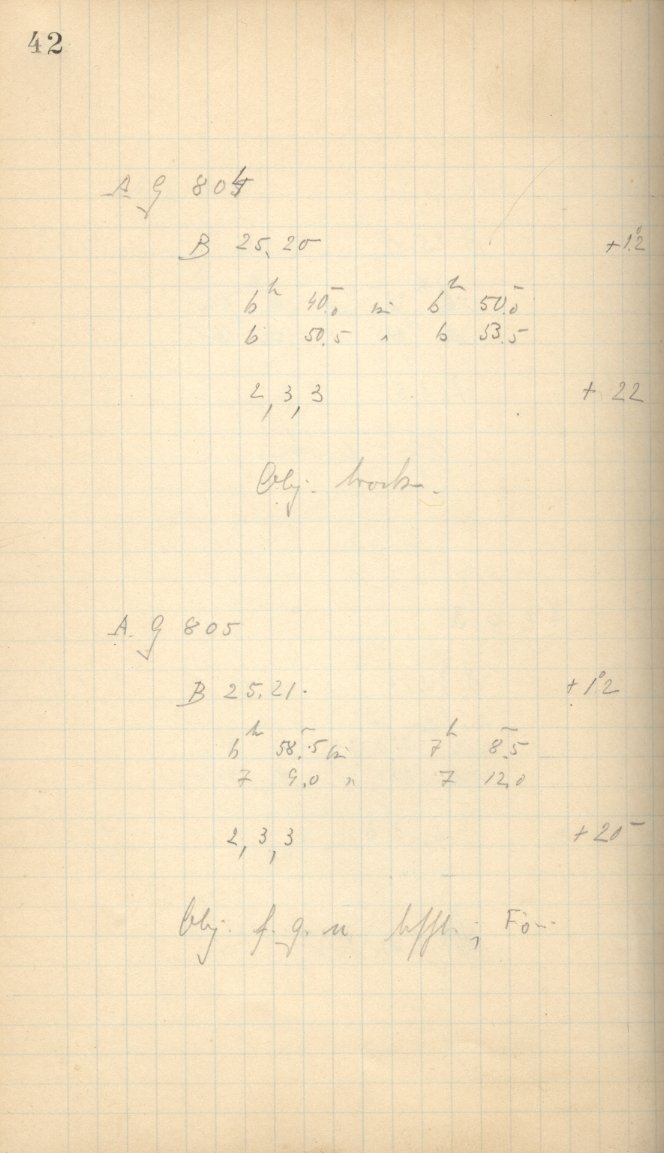 42
A G 804
B 25.20 +1°.2
6h 40m.0 bis 6h 50m.0
6 50.5 " 6 53.5
2, 3, 3 + 22
Obj.
A. G 805
B 25.21. +1°.2
6h 58m.5 bis 7h 8m.5
7 9.0 " 7 12.0
2, 3, 3 + 20m
Obj. f. g. u